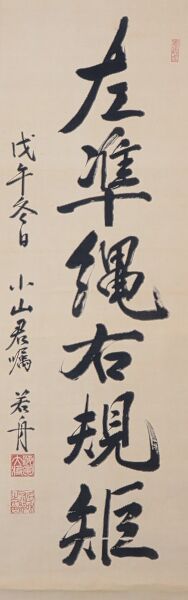 左準縄右規矩
戊午冬日 小山君嘱 若舟